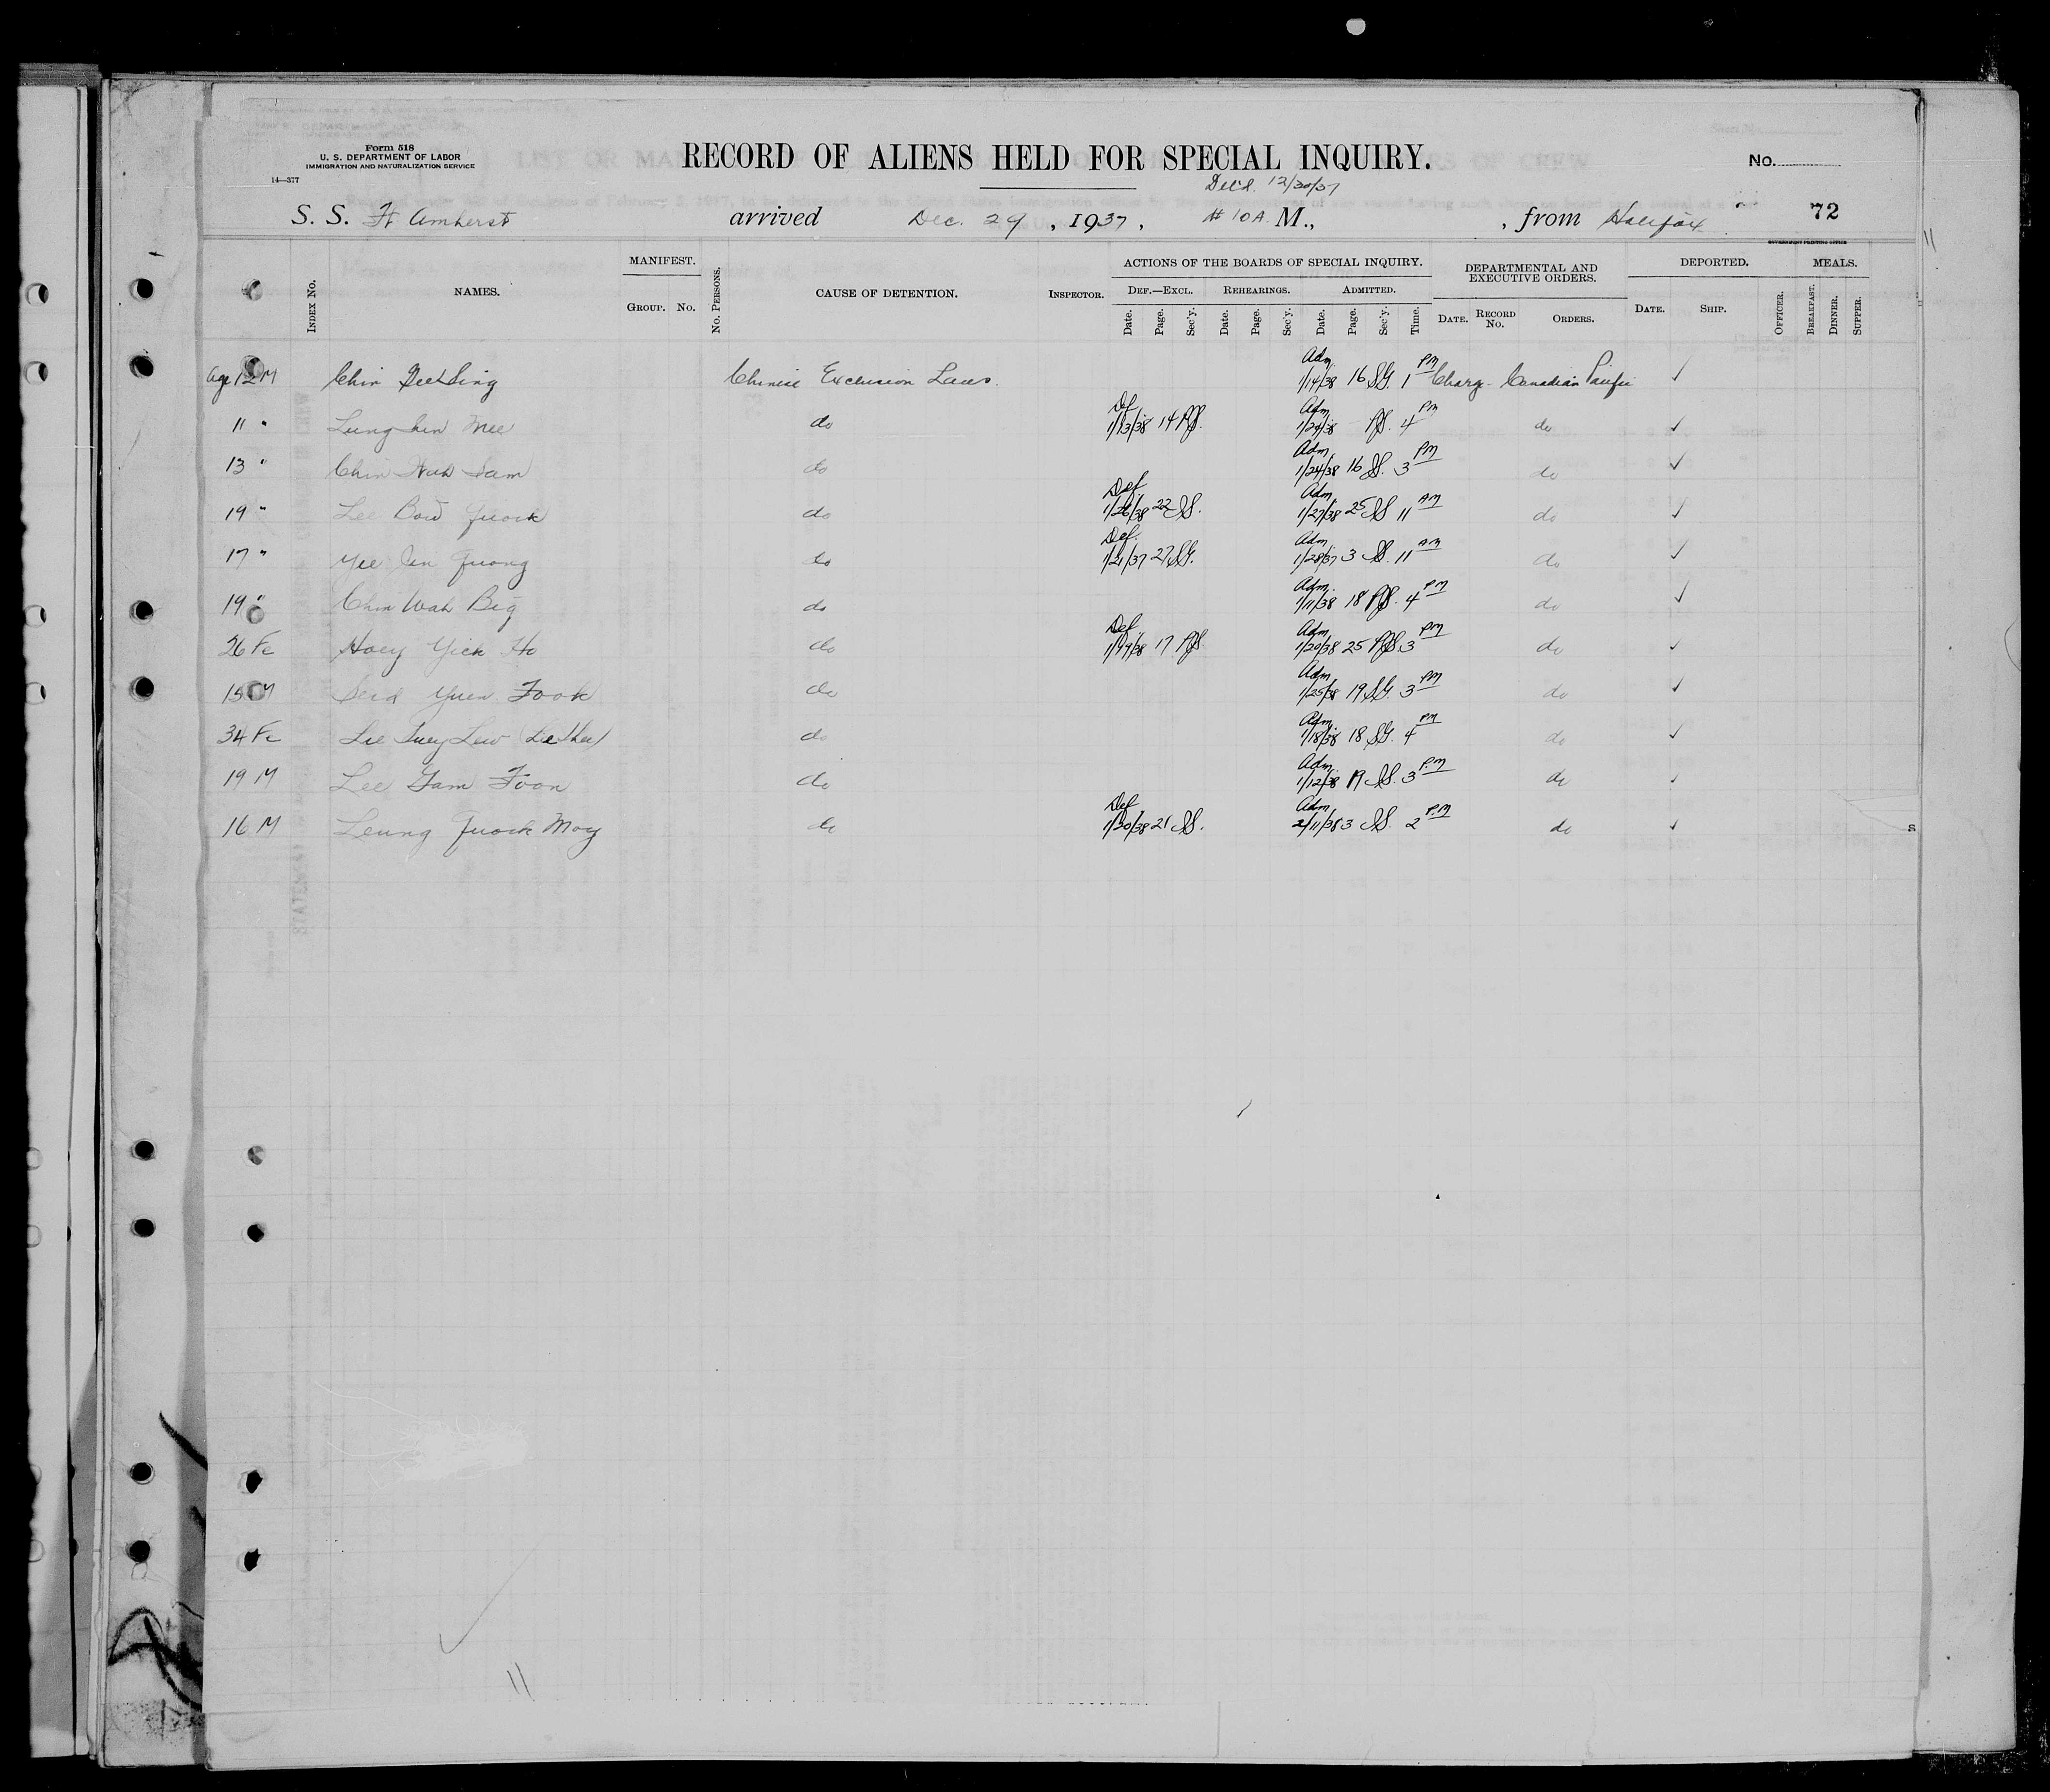 Form 518
U. S. DEPARTMENT OF LABOR
IMMIGRATION AND NATURALIZATION SERVICE
14—377
RECORD OF ALIENS HELD FOR SPECIAL INQUIRY.
No.
12/30/37
S. S. Ft Amherst arrived Dec. 29, 1937, 10 A. M., , from Halifax 72
INDEX No. NAMES. MANIFEST. GROUP. No. No. PERSONS. CAUSE OF DETENTION. INSPECTOR. ACTIONS OF THE BOARDS OF SPECIAL INQUIRY. DEF.—EXCL. Date. Page. Sec'y. REHEARINGS. Date. Page. Sec'y. ADMITTED. Date. Page. Sec'y. Time. DEPARTMENTAL AND EXECUTIVE ORDERS. DATE. RECORD No. ORDERS. DEPORTED. DATE. SHIP. OFFICER. MEALS. BREAKFAST. DINNER. SUPPER.
Age 12 M Chin Sing Chinese Exclusion Laws. Adm 1/14/38 16 SG. 1 PM Charg- Canadian Pacific ✓
11 " Lung Mee do Def 1/13/38 14 Adm 4 PM do ✓
13 " Chin Wah Sam do Adm 1/24/38 16 3 PM do ✓
19 " Lee Bow Quock do Def 1/26/38 22 Adm 1/27/38 25 11 AM do ✓
17 " Yee Quong do Def. 1/21/37 27 SG. Adm 1/28/37 3 11 AM do ✓
19 " Chin Wah Big do Adm. 1/11/38 18 4 PM do ✓
26 Fe Hoey Yick Ho do Def 17 Adm 1/20/38 25 3 PM do ✓
15 M Yuen Fook do Adm 1/25/38 19 SG. 3 PM do ✓
34 Fe Lee Suey Lew do Adm 1/18/38 18 SG. 4 PM do ✓
19 M Lee Gam Foon do Adm. 1/12/38 19 3 P.M do ✓
16 M Leung Quock Moy do Def 1/20/38 21 Adm 2/11/38 3 2 P.M do ✓
11